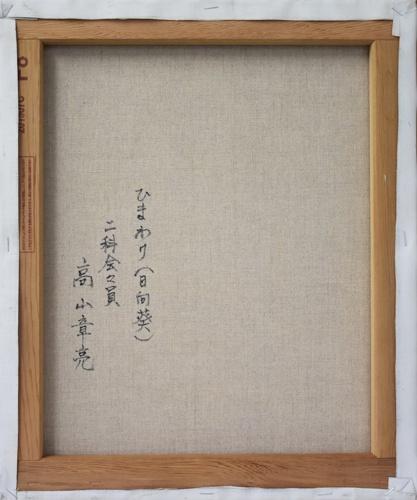 ひまわり(日向葵)
二科会々員
高山章亮